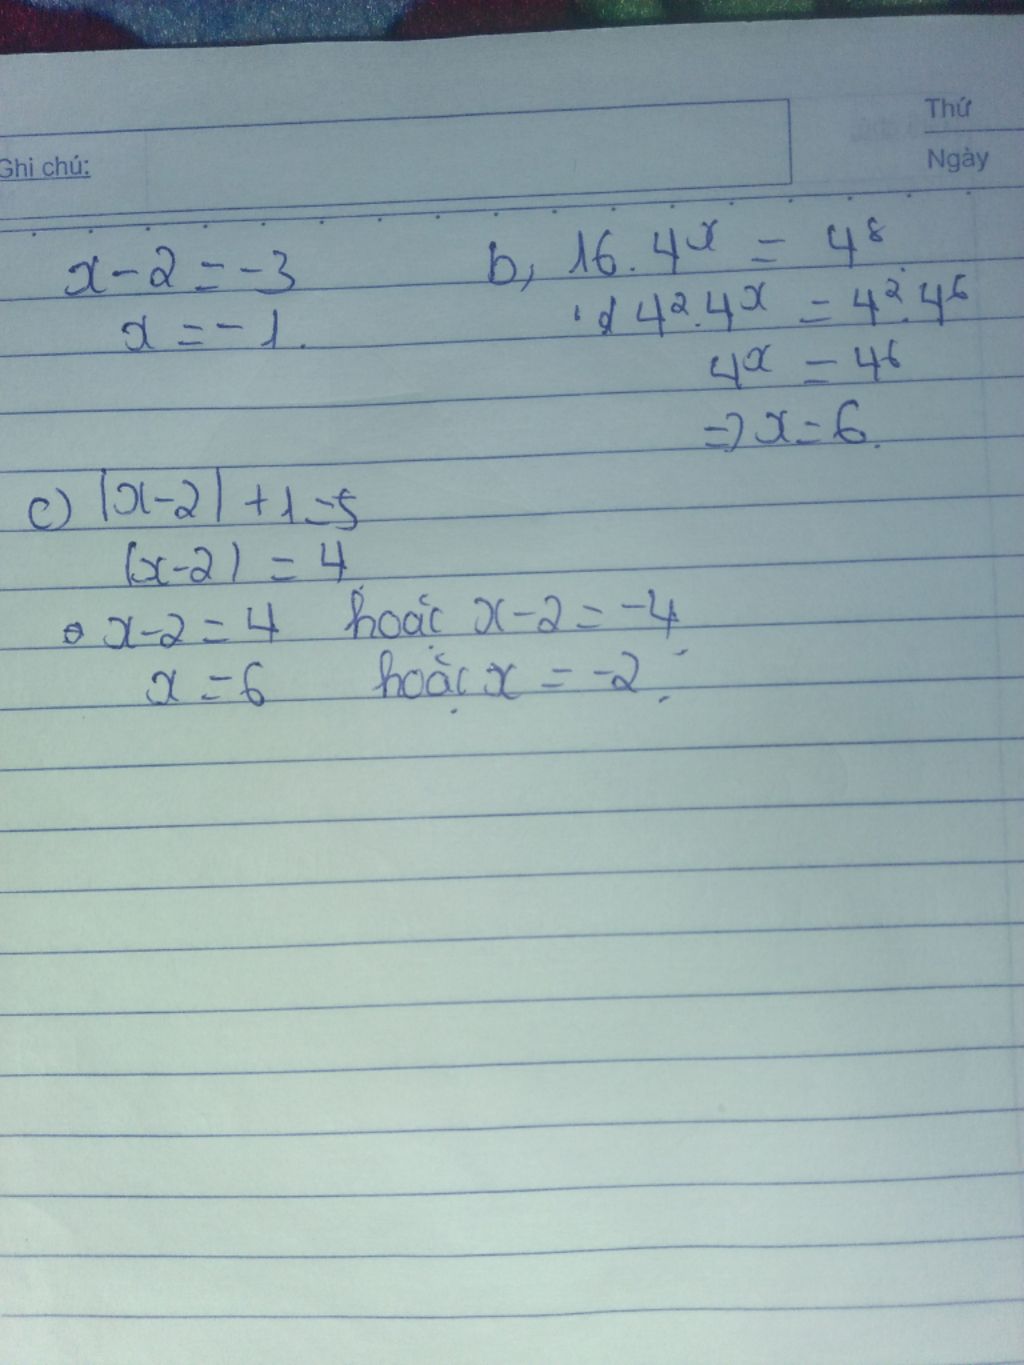 Thứ
Ghi chú:
Ngày
x-2=-3
x=-1.
b, 16.4^x = 4^8
4^2.4^x = 4^2.4^6
4^x = 4^6
=> x=6.
c) |x-2|+1=5
|x-2| = 4
x-2=4 hoặc x-2=-4
x=6 hoặc x=-2.